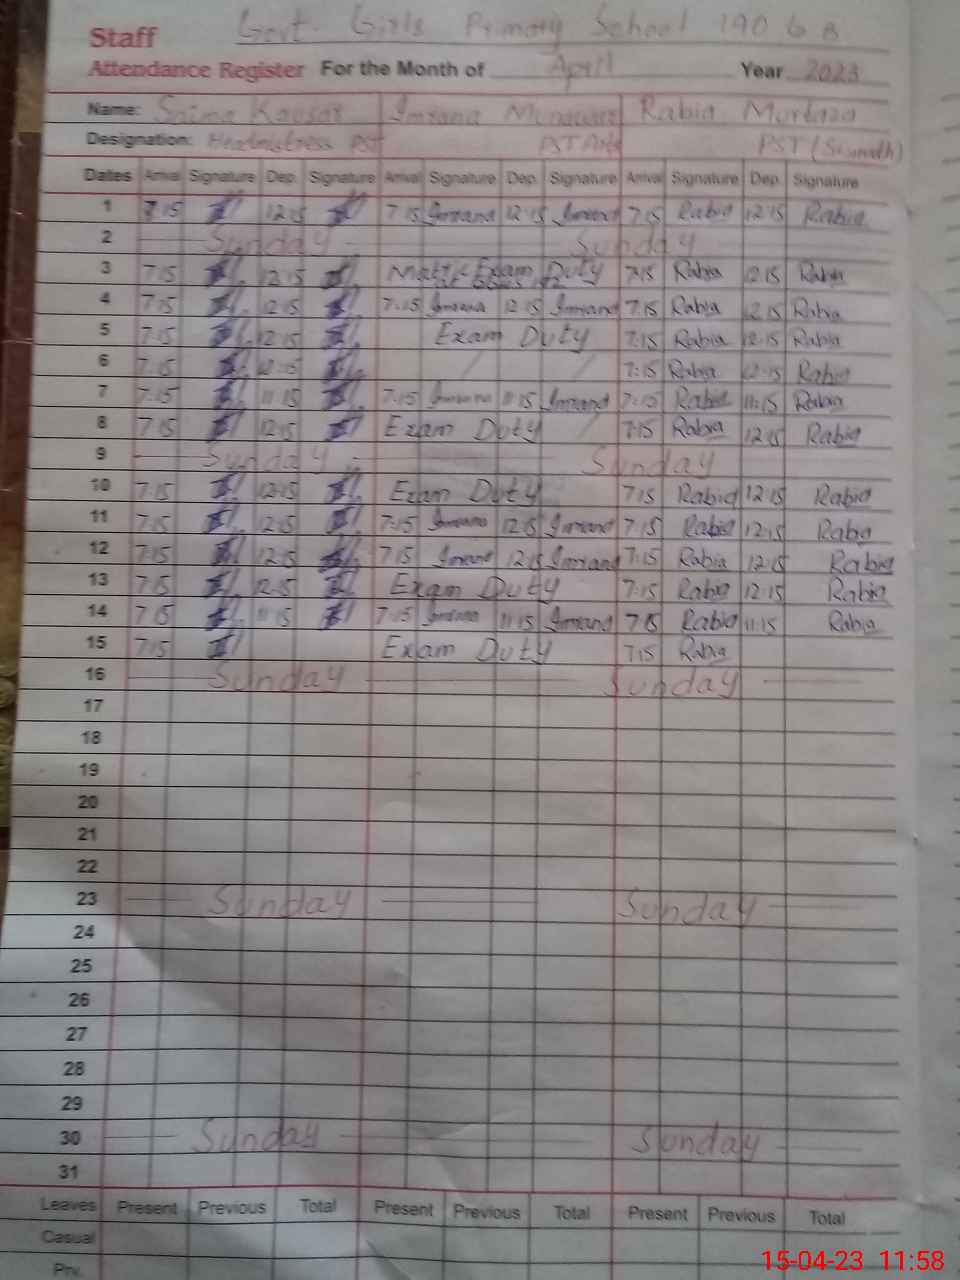 Govt. Girls Primary School 190 6 B
Staff
Attendance Register For the Month of April Year 2023
Name: Saima Kausar Imrana Munawar Rabia Murtaza
Designation: Headmistress PST PST Arts PST (Sci math)
Dates Arrival Signature Dep. Signature Arrival Signature Dep. Signature Arrival Signature Dep. Signature
1 7:15 12:15 7:15 Imrana 12:15 Imrana 7:15 Rabia 12:15 Rabia
2 Sunday Sunday
3 7:15 12:15 Matric Exam Duty 7:15 Rabia 12:15 Rabia
4 7:15 12:15 7:15 Imrana 12:15 Imrana 7:15 Rabia 12:15 Rabia
5 7:15 12:15 Exam Duty 7:15 Rabia 12:15 Rabia
6 7:15 12:15 7:15 Rabia 12:15 Rabia
7 7:15 11:15 7:15 Imrana 11:15 Imrana 7:15 Rabia 11:15 Rabia
8 7:15 12:15 Exam Duty 7:15 Rabia 12:15 Rabia
9 Sunday Sunday
10 7:15 12:15 Exam Duty 7:15 Rabia 12:15 Rabia
11 7:15 12:15 7:15 Imrana 12:15 Imrana 7:15 Rabia 12:15 Rabia
12 7:15 12:15 7:15 Imrana 12:15 Imrana 7:15 Rabia 12:15 Rabia
13 7:15 12:15 Exam Duty 7:15 Rabia 12:15 Rabia
14 7:15 11:15 7:15 Imrana 11:15 Imrana 7:15 Rabia 11:15 Rabia
15 7:15 Exam Duty 7:15 Rabia
16 Sunday Sunday
17
18
19
20
21
22
23 Sunday Sunday
24
25
26
27
28
29
30 Sunday Sunday
31
Leaves Present Previous Total Present Previous Total Present Previous Total
Casual
Prv.
15-04-23 11:58